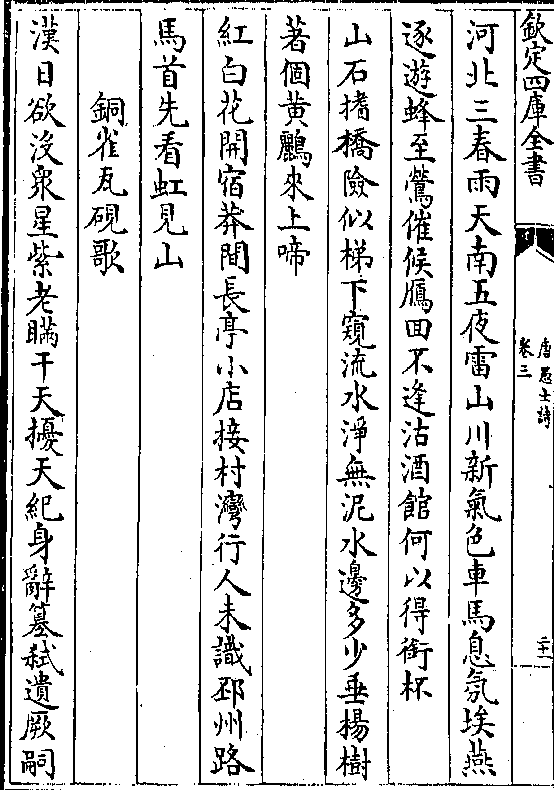 欽定四庫全書
唐愚士詩
卷三
二十一
河北三春雨天南五夜雷山川新氣色車馬息氛埃燕
逐遊蜂至鶯催候鴈回不逢沽酒館何以得銜杯
山石撐橋險似梯下窺流水淨無泥水邊多少垂楊樹
著個黄鸝來上啼
紅白花開宿莽間長亭小店接村灣行人未識邳州路
馬首先看虹見山
銅雀瓦硯歌
漢日欲沒衆星紫老瞞干天擾天紀身辭簒弑遺厥嗣